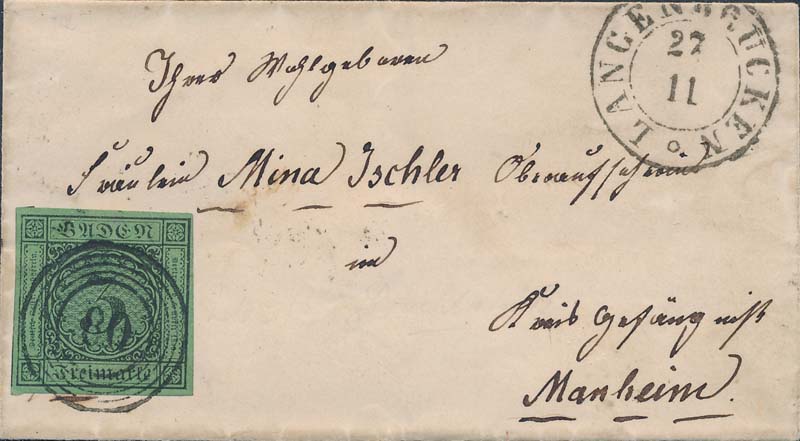 LANGENBRÜCKEN
22
11
Ihrer Wohlgeboren
Fräulein Mina Ischler Oberaufseherin
im
Kreis Gefängniß
Manheim.
BADEN
Freimarke